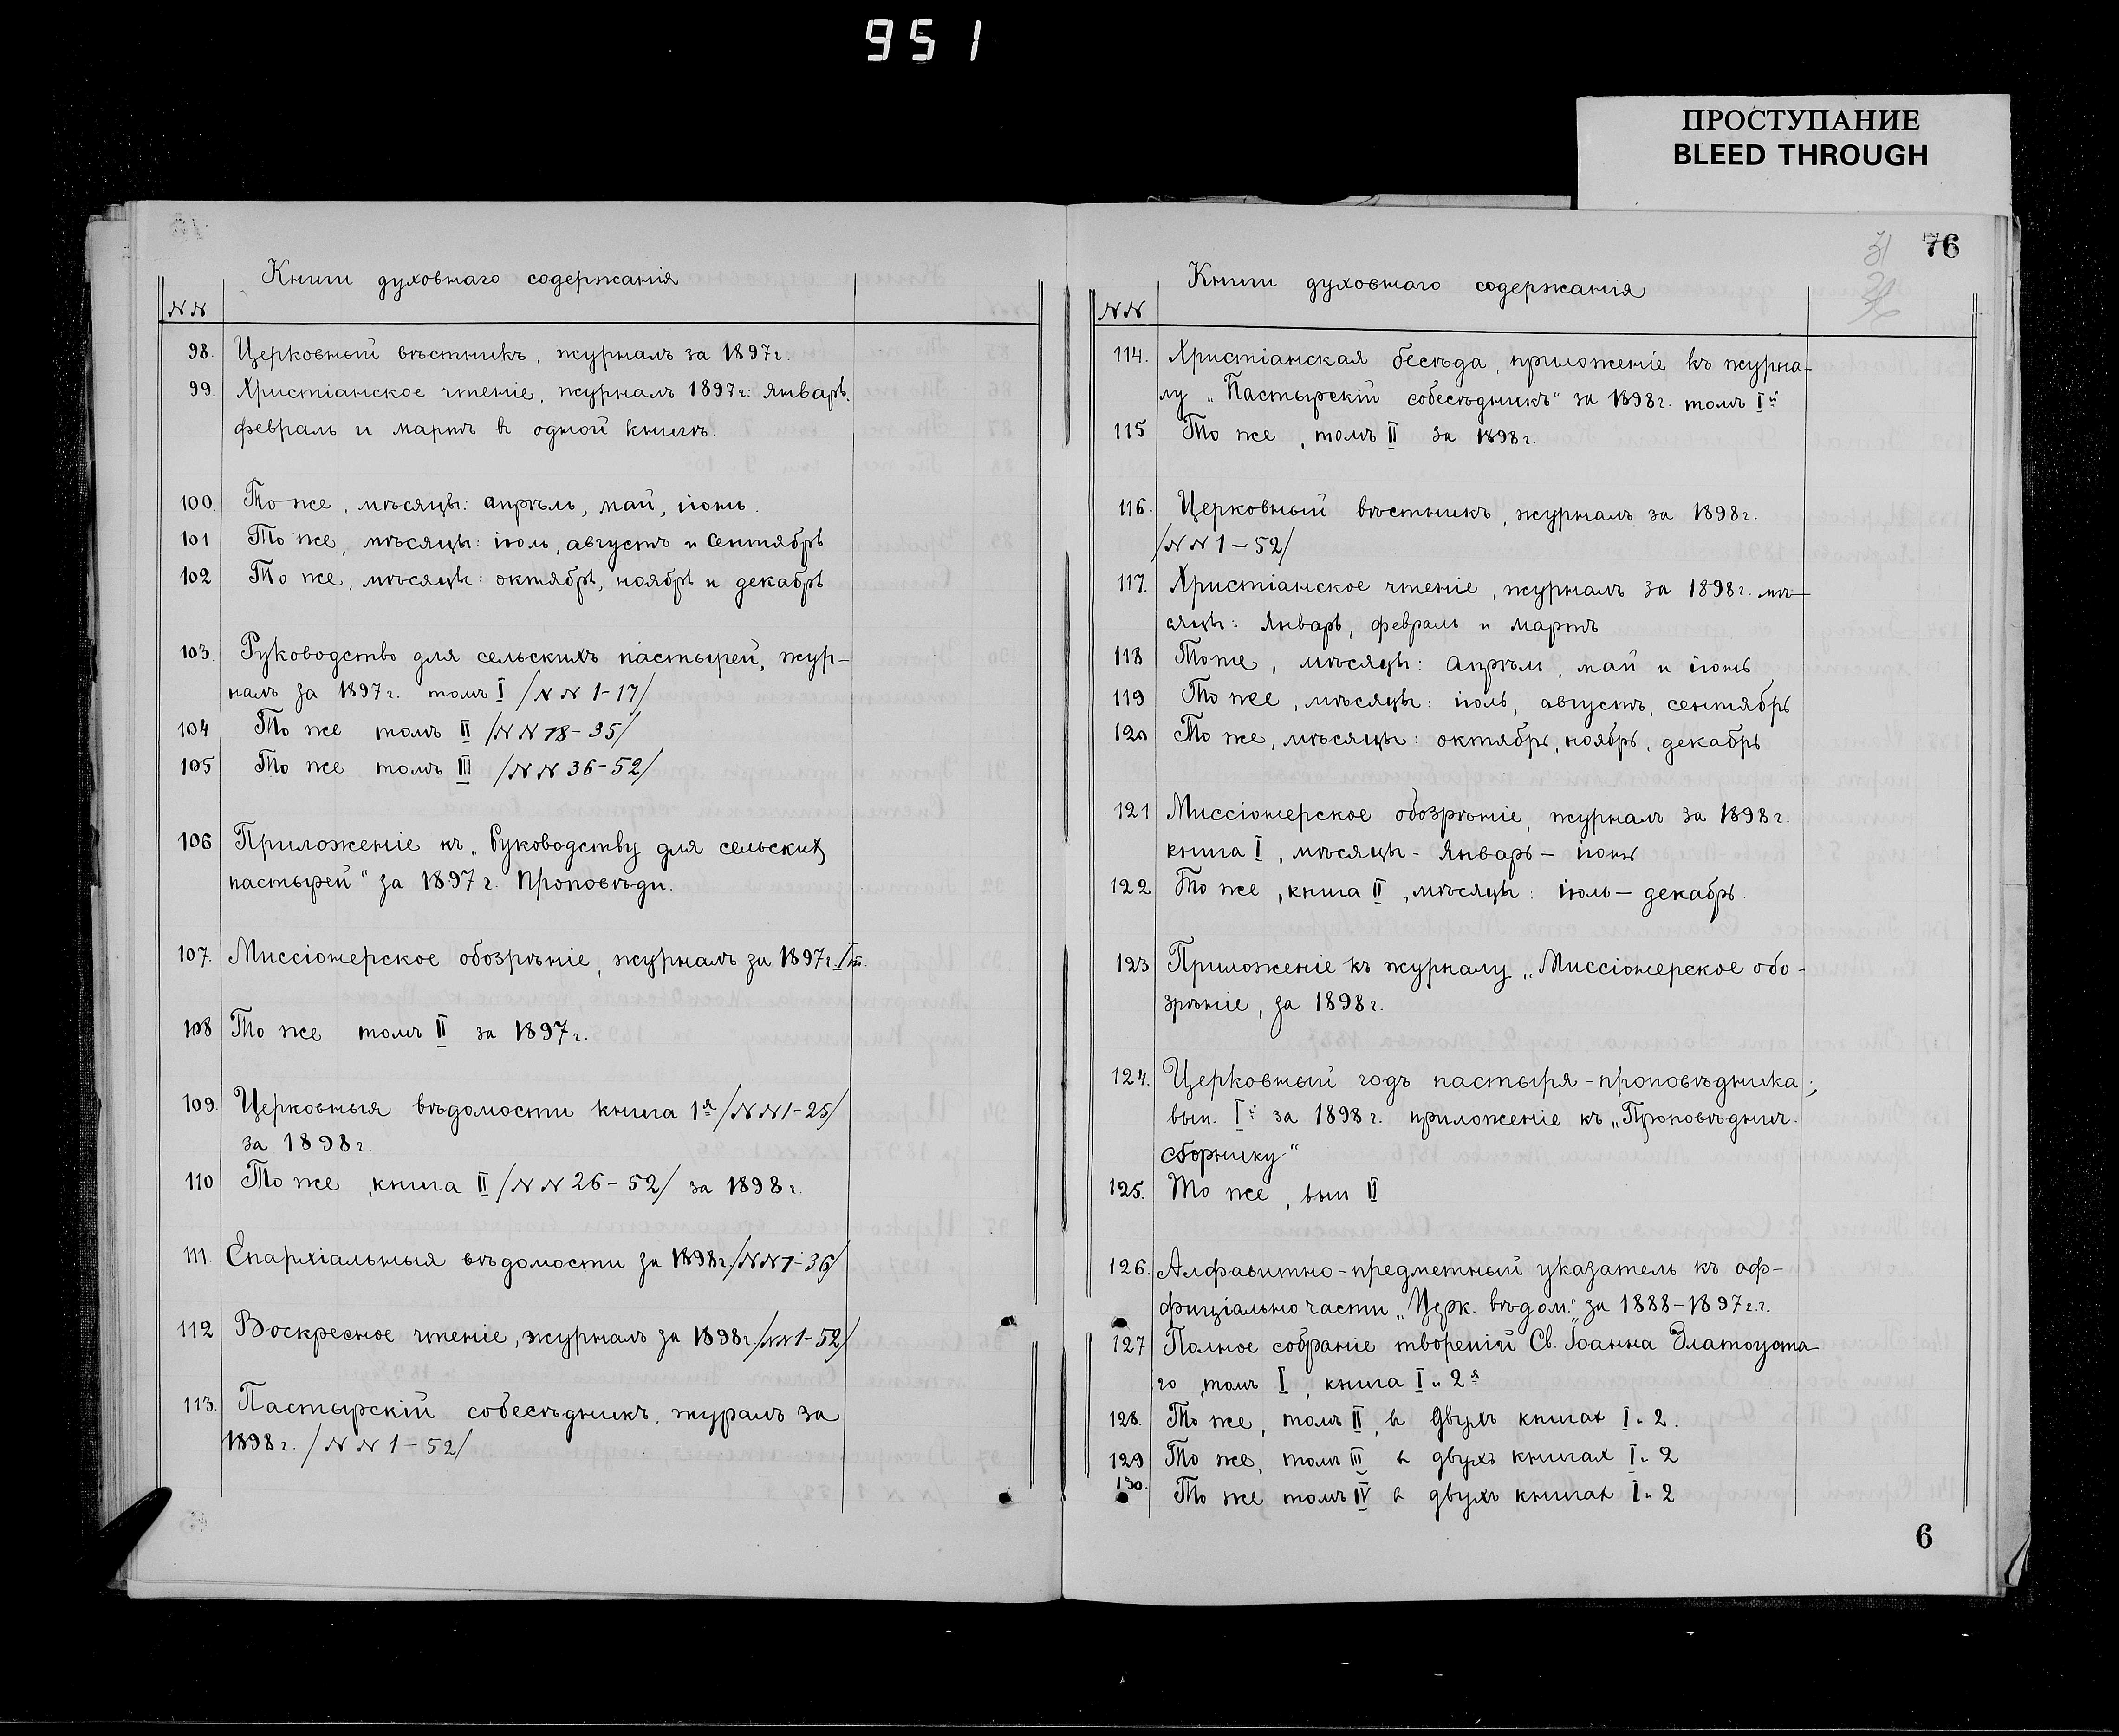 951
ПРОСТУПАНИЕ
BLEED THROUGH
Книги духовнаго содержанія
NN
98. Церковный вѣстникъ, журналъ за 1897г.
99. Христіанское чтеніе, журналъ 1897г: январь,
февраль и мартъ въ одной книгѣ.
100. То же, мѣсяцы: апрѣль, май, іюнь.
101 То же, мѣсяцы: іюль, августъ и сентябрь
102 То же, мѣсяцы: октябрь, ноябрь и декабрь
103. Руководство для сельскихъ пастырей, жур-
налъ за 1897г. томъ I /NN 1-17/
104 То же томъ II /NN 18-35/
105 То же томъ III /NN 36-52/
106 Приложеніе къ „Руководству для сельскихъ
пастырей“ за 1897г. Проповѣди.
107. Миссіонерское обозрѣніе, журналъ за 1897г. I т.
108 То же томъ II за 1897г.
109. Церковныя вѣдомости книга 1я /NN1-25/
за 1898г.
110 То же, книга II /NN 26-52/ за 1898г.
111. Епархіальныя вѣдомости за 1898г. /NN1-36/
112 Воскресное чтеніе, журналъ за 1898г. /NN1-52/
113. Пастырскій собесѣдникъ, журалъ за
1898г. /NN 1-52/
76
31
Книги духовнаго содержанія
NN
114. Христіанская бесѣда, приложеніе къ журна-
лу „Пастырскій собесѣдникъ“ за 1898г. томъ Iй
115 То же, томъ II за 1898г.
116. Церковный вѣстникъ, журналъ за 1898г.
/NN 1-52/
117. Христіанское чтеніе, журналъ за 1898г. мѣ-
сяцы: январь, февраль и мартъ
118 Тоже, мѣсяцы: апрѣль, май и іюнь
119 То же, мѣсяцы: іюль, августъ, сентябрь
120 То же, мѣсяцы: октябрь, ноябрь, декабрь
121 Миссіонерское обозрѣніе, журналъ за 1898г.
книга I, мѣсяцы - январь - іюнь
122 То же, книга II, мѣсяцы: іюль - декабрь.
123 Приложеніе къ журналу „Миссіонерское обо-
зрѣніе, за 1898г.
124. Церковный годъ пастыря-проповѣдника;
вып. Iй за 1898г. приложеніе къ „Проповѣднич.
сборнику“
125. То же, вып II
126. Алфавитно-предметный указатель къ оф-
фиціально части „Церк. вѣдом.“ за 1888-1897г.г.
127 Полное собраніе твореній Св. Іоанна Златоуста-
го, томъ I, книга I и 2я
128. То же, томъ II, въ двухъ книгах I и 2.
129 То же, томъ III въ двухъ книгах I и 2
130. То же томъ IV в двухъ книгах I и 2
6